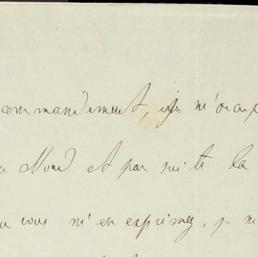 commandement, je m'occup
Nord et par suite la
vous m'en exprimez, je n